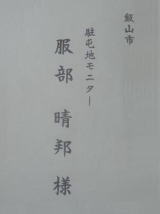 飯山市
駐屯地モニター
服部 晴邦 様